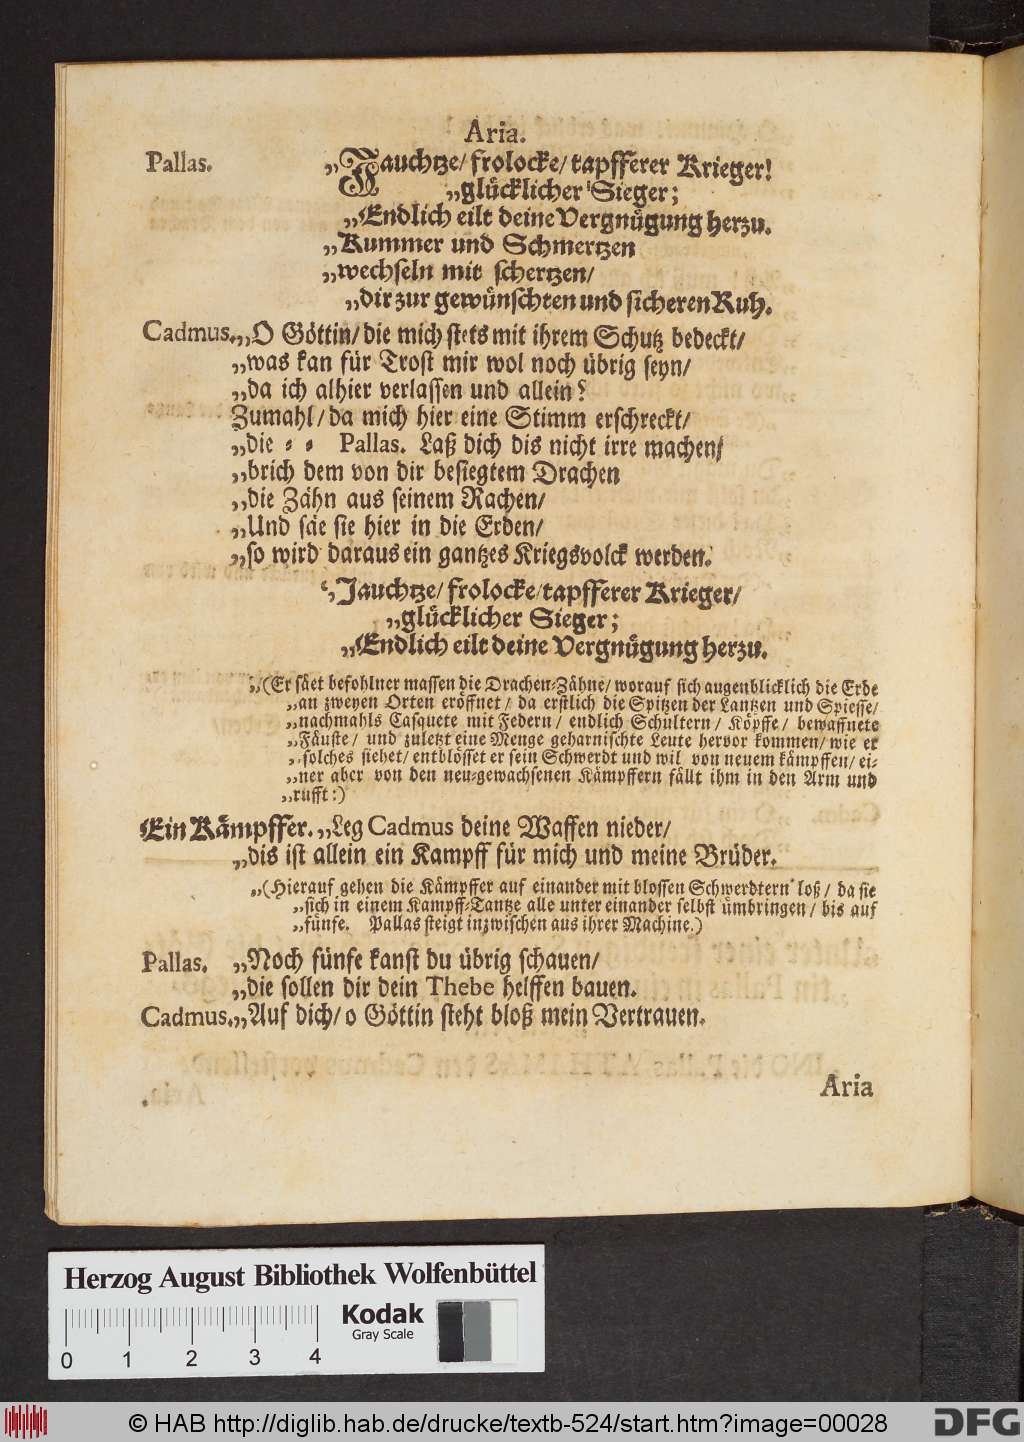 Aria.
Pallas. „Jauchtze/ frolocke/ tapfferer Krieger!
„glücklicher Sieger;
„Endlich eilt deine Vergnügung herzu.
„Kummer und Schmertzen
„wechseln mit schertzen/
„dir zur gewünschten und sicheren Ruh.
Cadmus. „O Göttin/ die mich stets mit ihrem Schutz bedeckt/
„was kan für Trost mir wol noch übrig seyn/
„da ich alhier verlassen und allein?
Zumahl/ da mich hier eine Stimm erschreckt/
„die ⸗ ⸗ Pallas. Laß dich dis nicht irre machen/
„brich dem von dir besiegtem Drachen
„die Zähn aus seinem Rachen/
„Und säe sie hier in die Erden/
„so wird daraus ein gantzes Kriegsvolck werden.
„Jauchtze/ frolocke/ tapfferer Krieger/
„glücklicher Sieger;
„Endlich eilt deine Vergnügung herzu.
„(Er säet befohlner massen die Drachen⸗Zähne/ worauf sich augenblicklich die Erde
„an zweyen Orten eröffnet/ da erstlich die Spitzen der Lantzen und Spiesse/
„nachmahls Casquete mit Federn/ endlich Schultern/ Köpffe/ bewaffnete
„Fäuste/ und zuletzt eine Menge geharnischte Leute hervor kommen/ wie er
„solches siehet/ entblösset er sein Schwerdt und wil von neuem kämpffen/ ei-
„ner aber von den neu⸗gewachsenen Kämpffern fällt ihm in den Arm und
„rufft:)
Ein Kämpffer. „Leg Cadmus deine Waffen nieder/
„dis ist allein ein Kampff für mich und meine Brüder.
„(Hierauf gehen die Kämpffer auf einander mit blossen Schwerdtern loß/ da sie
„sich in einem Kampff⸗Tantze alle unter einander selbst ümbringen/ bis auf
„fünfe. Pallas steigt inzwischen aus ihrer Machine.)
Pallas. „Noch fünfe kanst du übrig schauen/
„die sollen dir dein Thebe helffen bauen.
Cadmus. „Auf dich/ o Göttin steht bloß mein Vertrauen.
Aria
Herzog August Bibliothek Wolfenbüttel
Kodak
Gray Scale
0 1 2 3 4
© HAB http://diglib.hab.de/drucke/textb-524/start.htm?image=00028
DFG